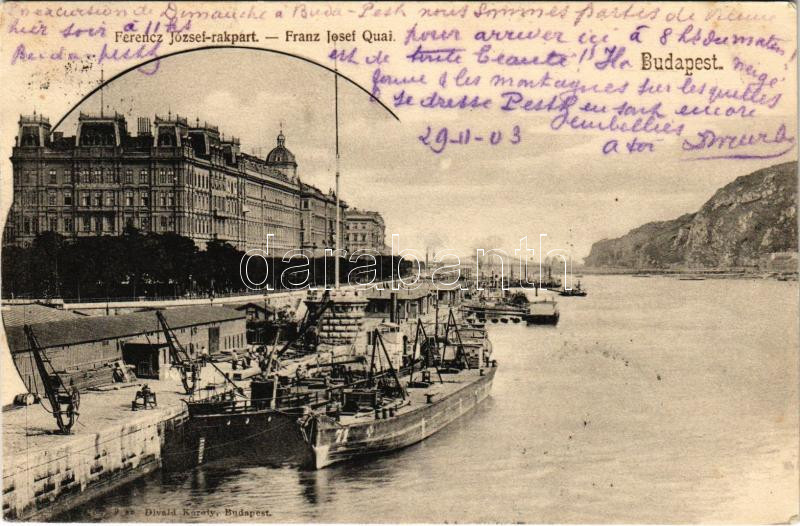 En excursion de Dimanche à Buda-Pesth nous sommes partis de Vienne
hier soir à 11 hs pour arriver ici à 8 hs du matin!
Ferencz József-rakpart. — Franz Josef Quai.
Buda-pesth est de toute beauté!! neige
Budapest.
les montagnes sur lesquelles
se dresse Pesth en sont encore
29-11-03
embellies
à toi
darabanth
71
Divald Károly, Budapest.